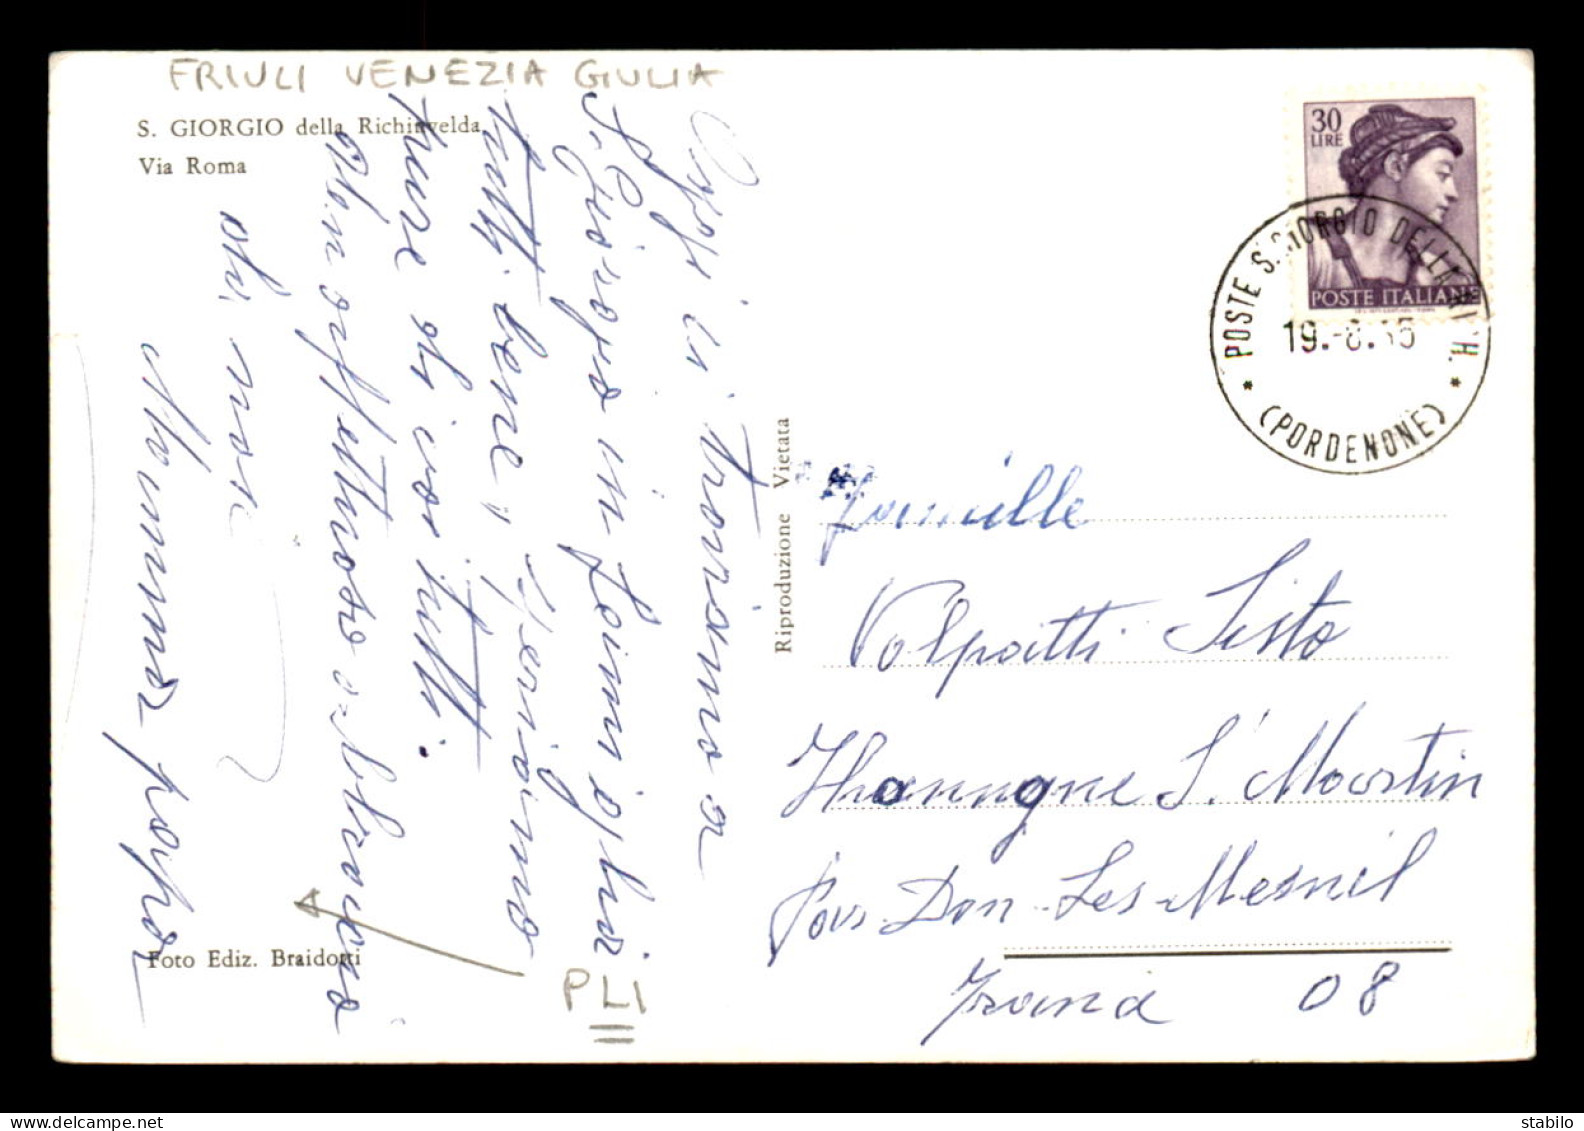 FRIULI VENEZIA GIULIA
S. GIORGIO della Richinvelda
Via Roma
Oggi ci troviamo a
S. Giorgio in famiglia
tutti bene, veniamo
pure di voi tutti.
Un affettuoso abbraccio
di noi
Mamma papa
Foto Ediz. Braidotti
PLI
Riproduzione Vietata
30
LIRE
POSTE ITALIANE
* POSTE S. GIORGIO DELLA RICH. *
19.-8.65
(PORDENONE)
Famille
Volpatti Sisto
Thonngne S. Martin
Par Don-Les-Mesnil
08